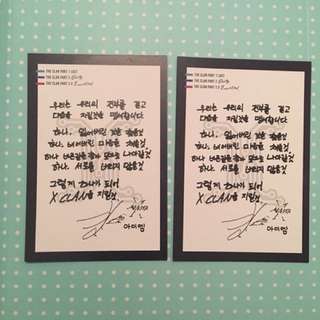 THE CLAN PART.1 LOST
THE CLAN PART.2 Guilty
THE CLAN PART 2.5 Beautiful
우리는 우리의 전부를 걸고
대열을 지킬것을 맹세합니다
하나, 잃어버린 것을 찾을것
하나, 버려진 미래를
하나
하나, 서로를 버리지 않을것
그렇게 하나가 되어
X CLAN을 지킬것
아이엠
THE CLAN PART.1 LOST
THE CLAN PART.2 Guilty
THE CLAN PART 2.5 Beautiful
우리는 우리의 전부를 걸고
대열을 지킬것을 맹세합니다
하나, 잃어버린 것을 찾을것
하나, 버려진 미래를
하나
하나, 서로를 버리지 않을것
그렇게 하나가 되어
X CLAN을 지킬것
아이엠